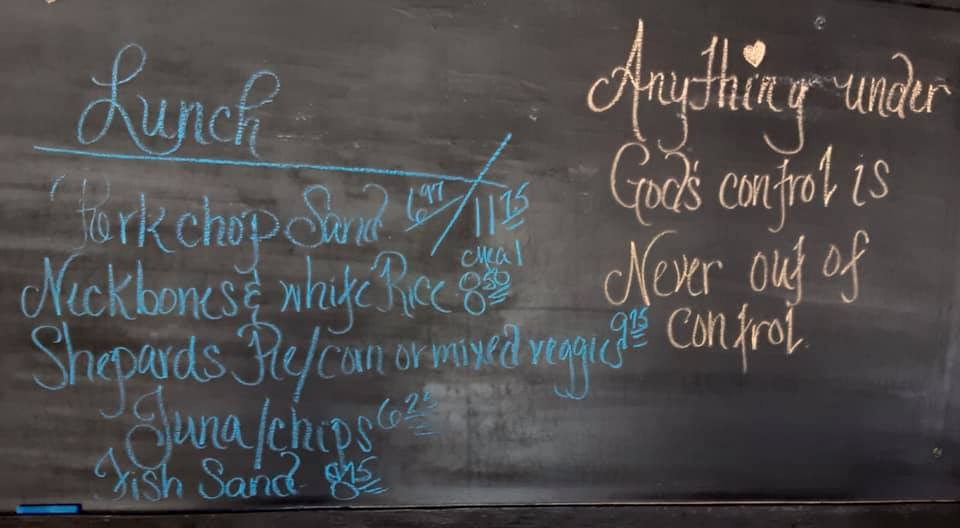 Lunch
Porkchop Sand. 6.97 / 11.75
meal
Neckbones & white Rice 8.50
Shepards Pie/corn or mixed veggies 9.75
Tuna/chips 6.25
Fish Sand 8.75
Anything under
God's control is
Never out of
control.